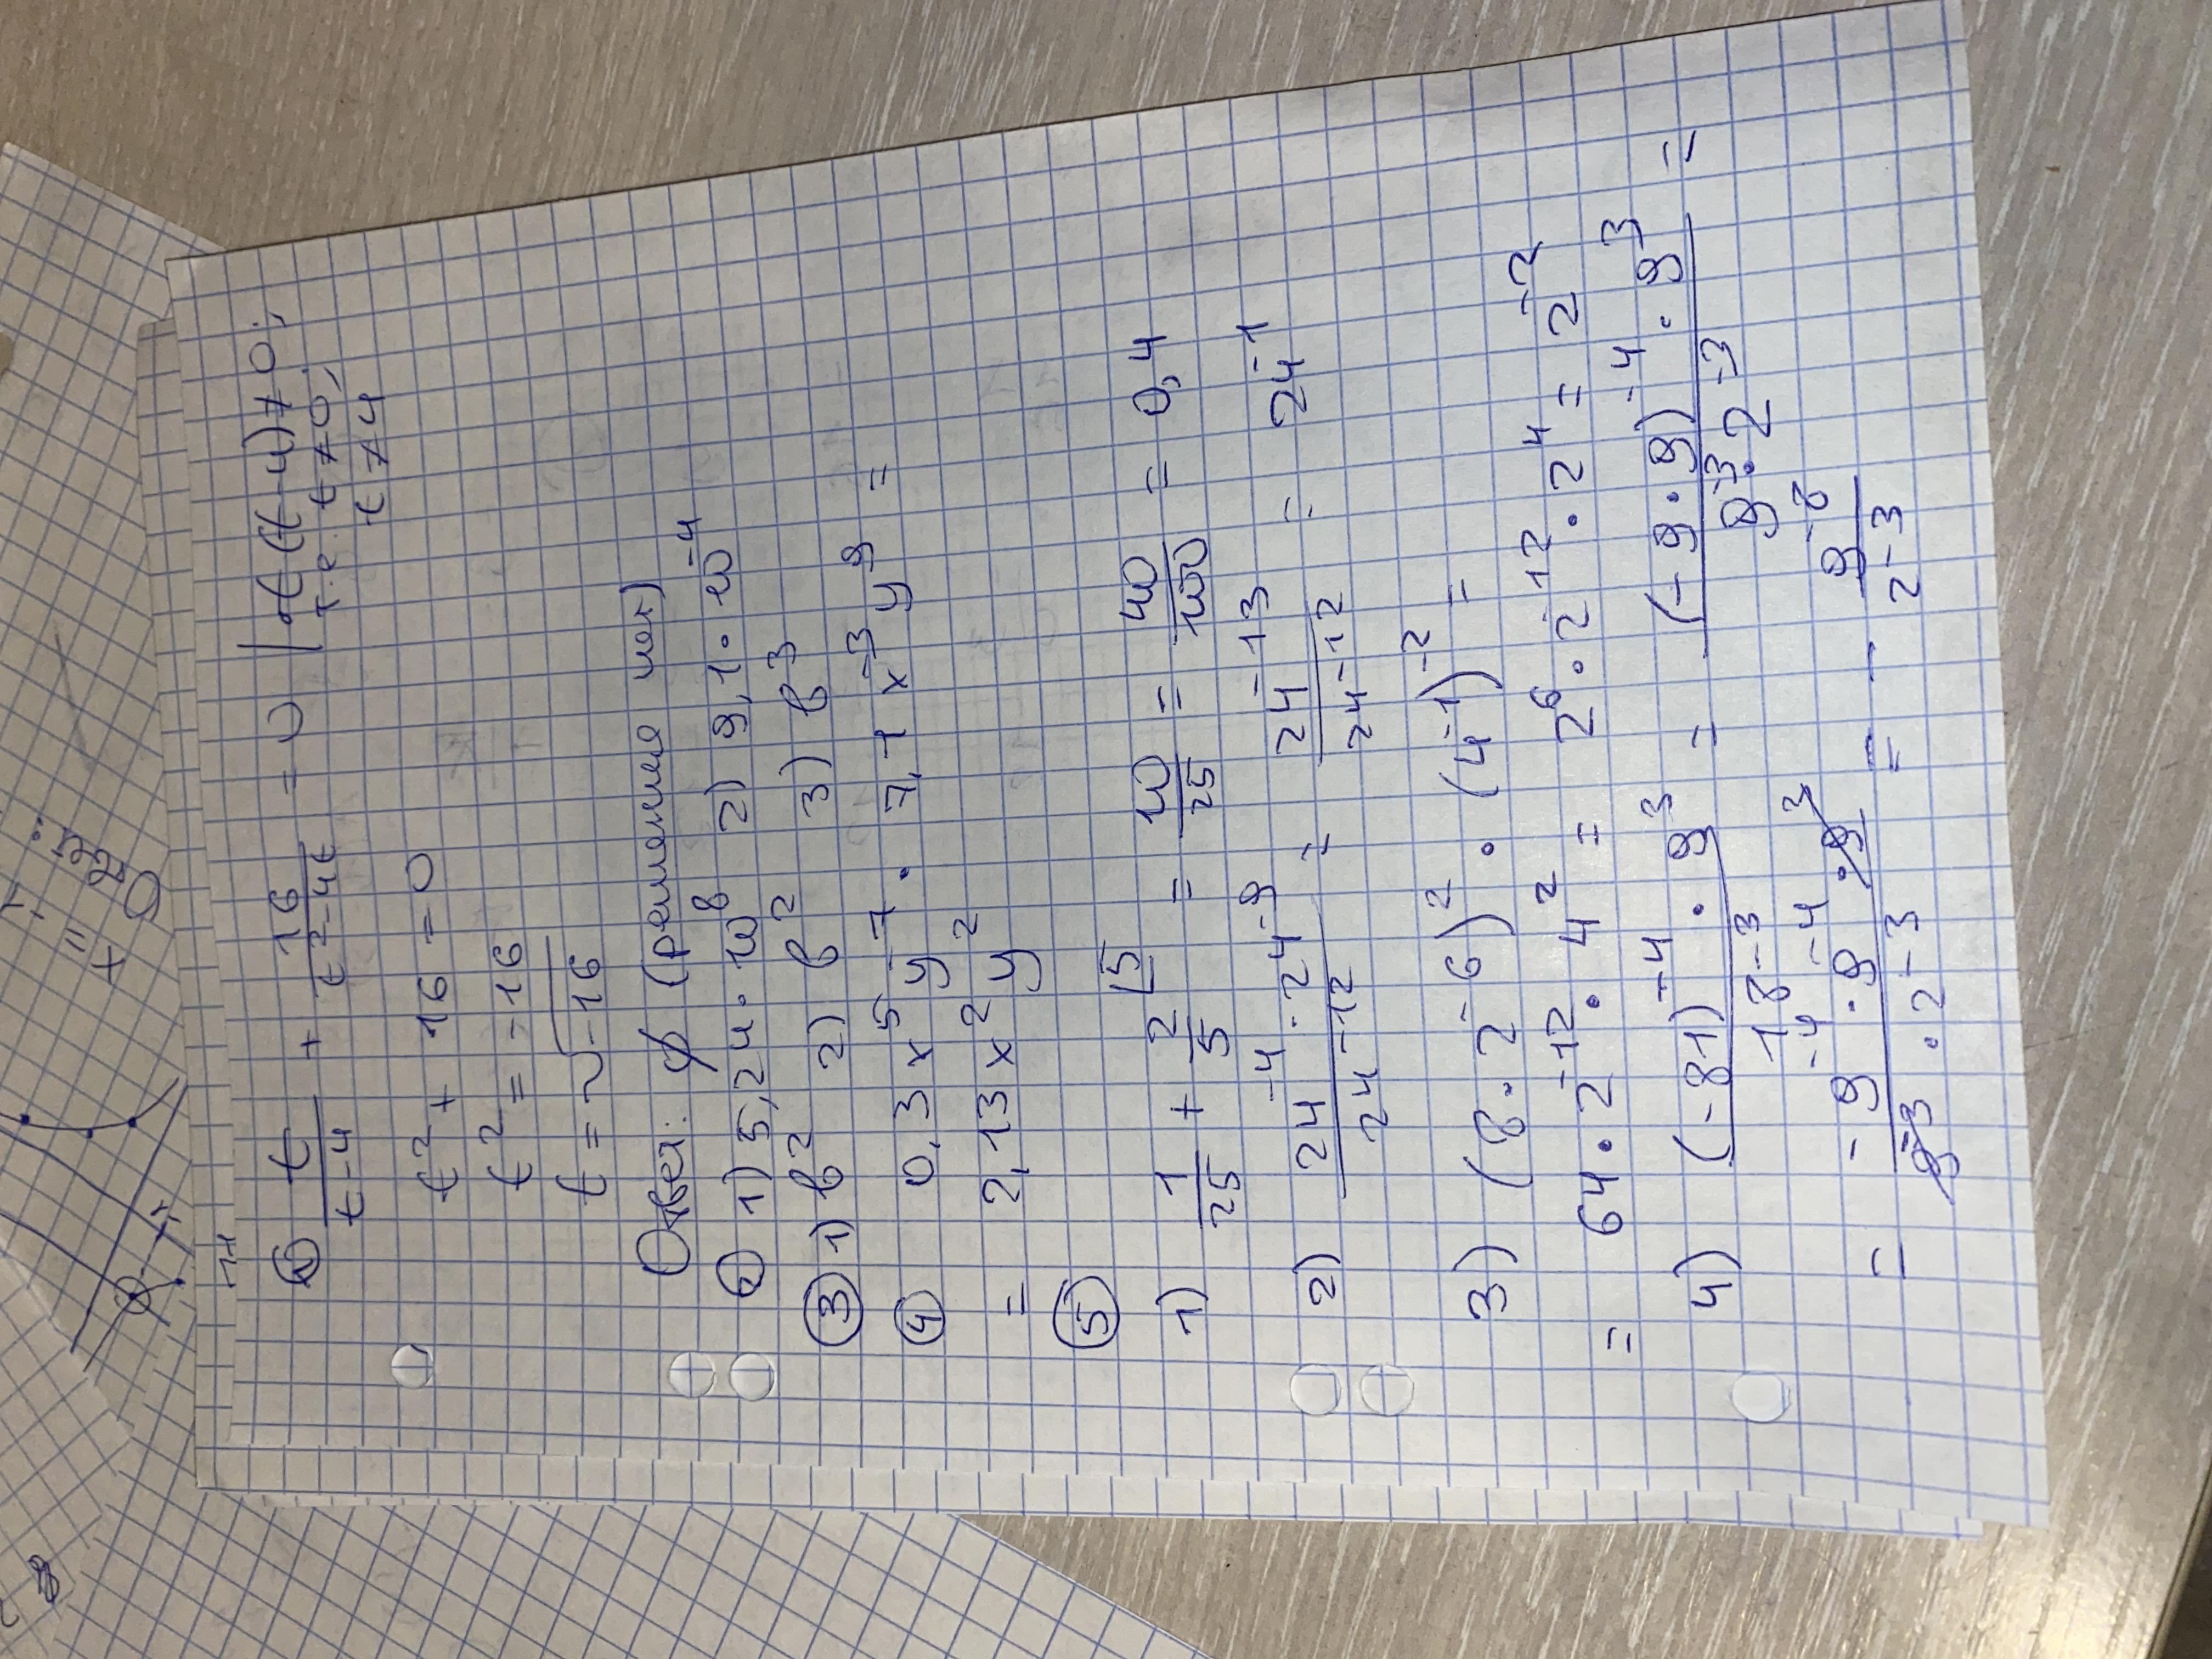 ① t/(t-4) + 16/(t²-4t) = 0 | t(t-4)≠0;
т.е. t≠0;
t≠4
t² + 16 = 0
t² = -16
t = √-16
Ответ: ∅ (решения нет)
② 1) 5,24 · 10⁸ 2) 9,1 · 10⁻⁴
③ 1) b² 2) b² 3) b³
④ 0,3x⁵y⁷ · 7,1x⁻³y⁹ =
= 2,13x²y²
⑤
1) 1/25 + 2/5 ⌊5 = 10/25 = 40/100 = 0,4
2) 24⁻⁴ · 24⁻⁹ / 24⁻¹² = 24⁻¹³ / 24⁻¹² = 24⁻¹
3) (8 · 2⁻⁶)² · (4⁻¹)⁻² =
= 64 · 2⁻¹² · 4² = 2⁶ · 2⁻¹² · 2⁴ = 2⁻²
4) (-81)⁻⁴ · 9³ / 18⁻³ = (-9 · 9)⁻⁴ · 9³ / 9⁻³ · 2⁻³ =
= -9⁻⁴ · 9⁻⁴ · 9³ / 9⁻³ · 2⁻³ = - 9⁻⁸ / 2⁻³
Ответ: